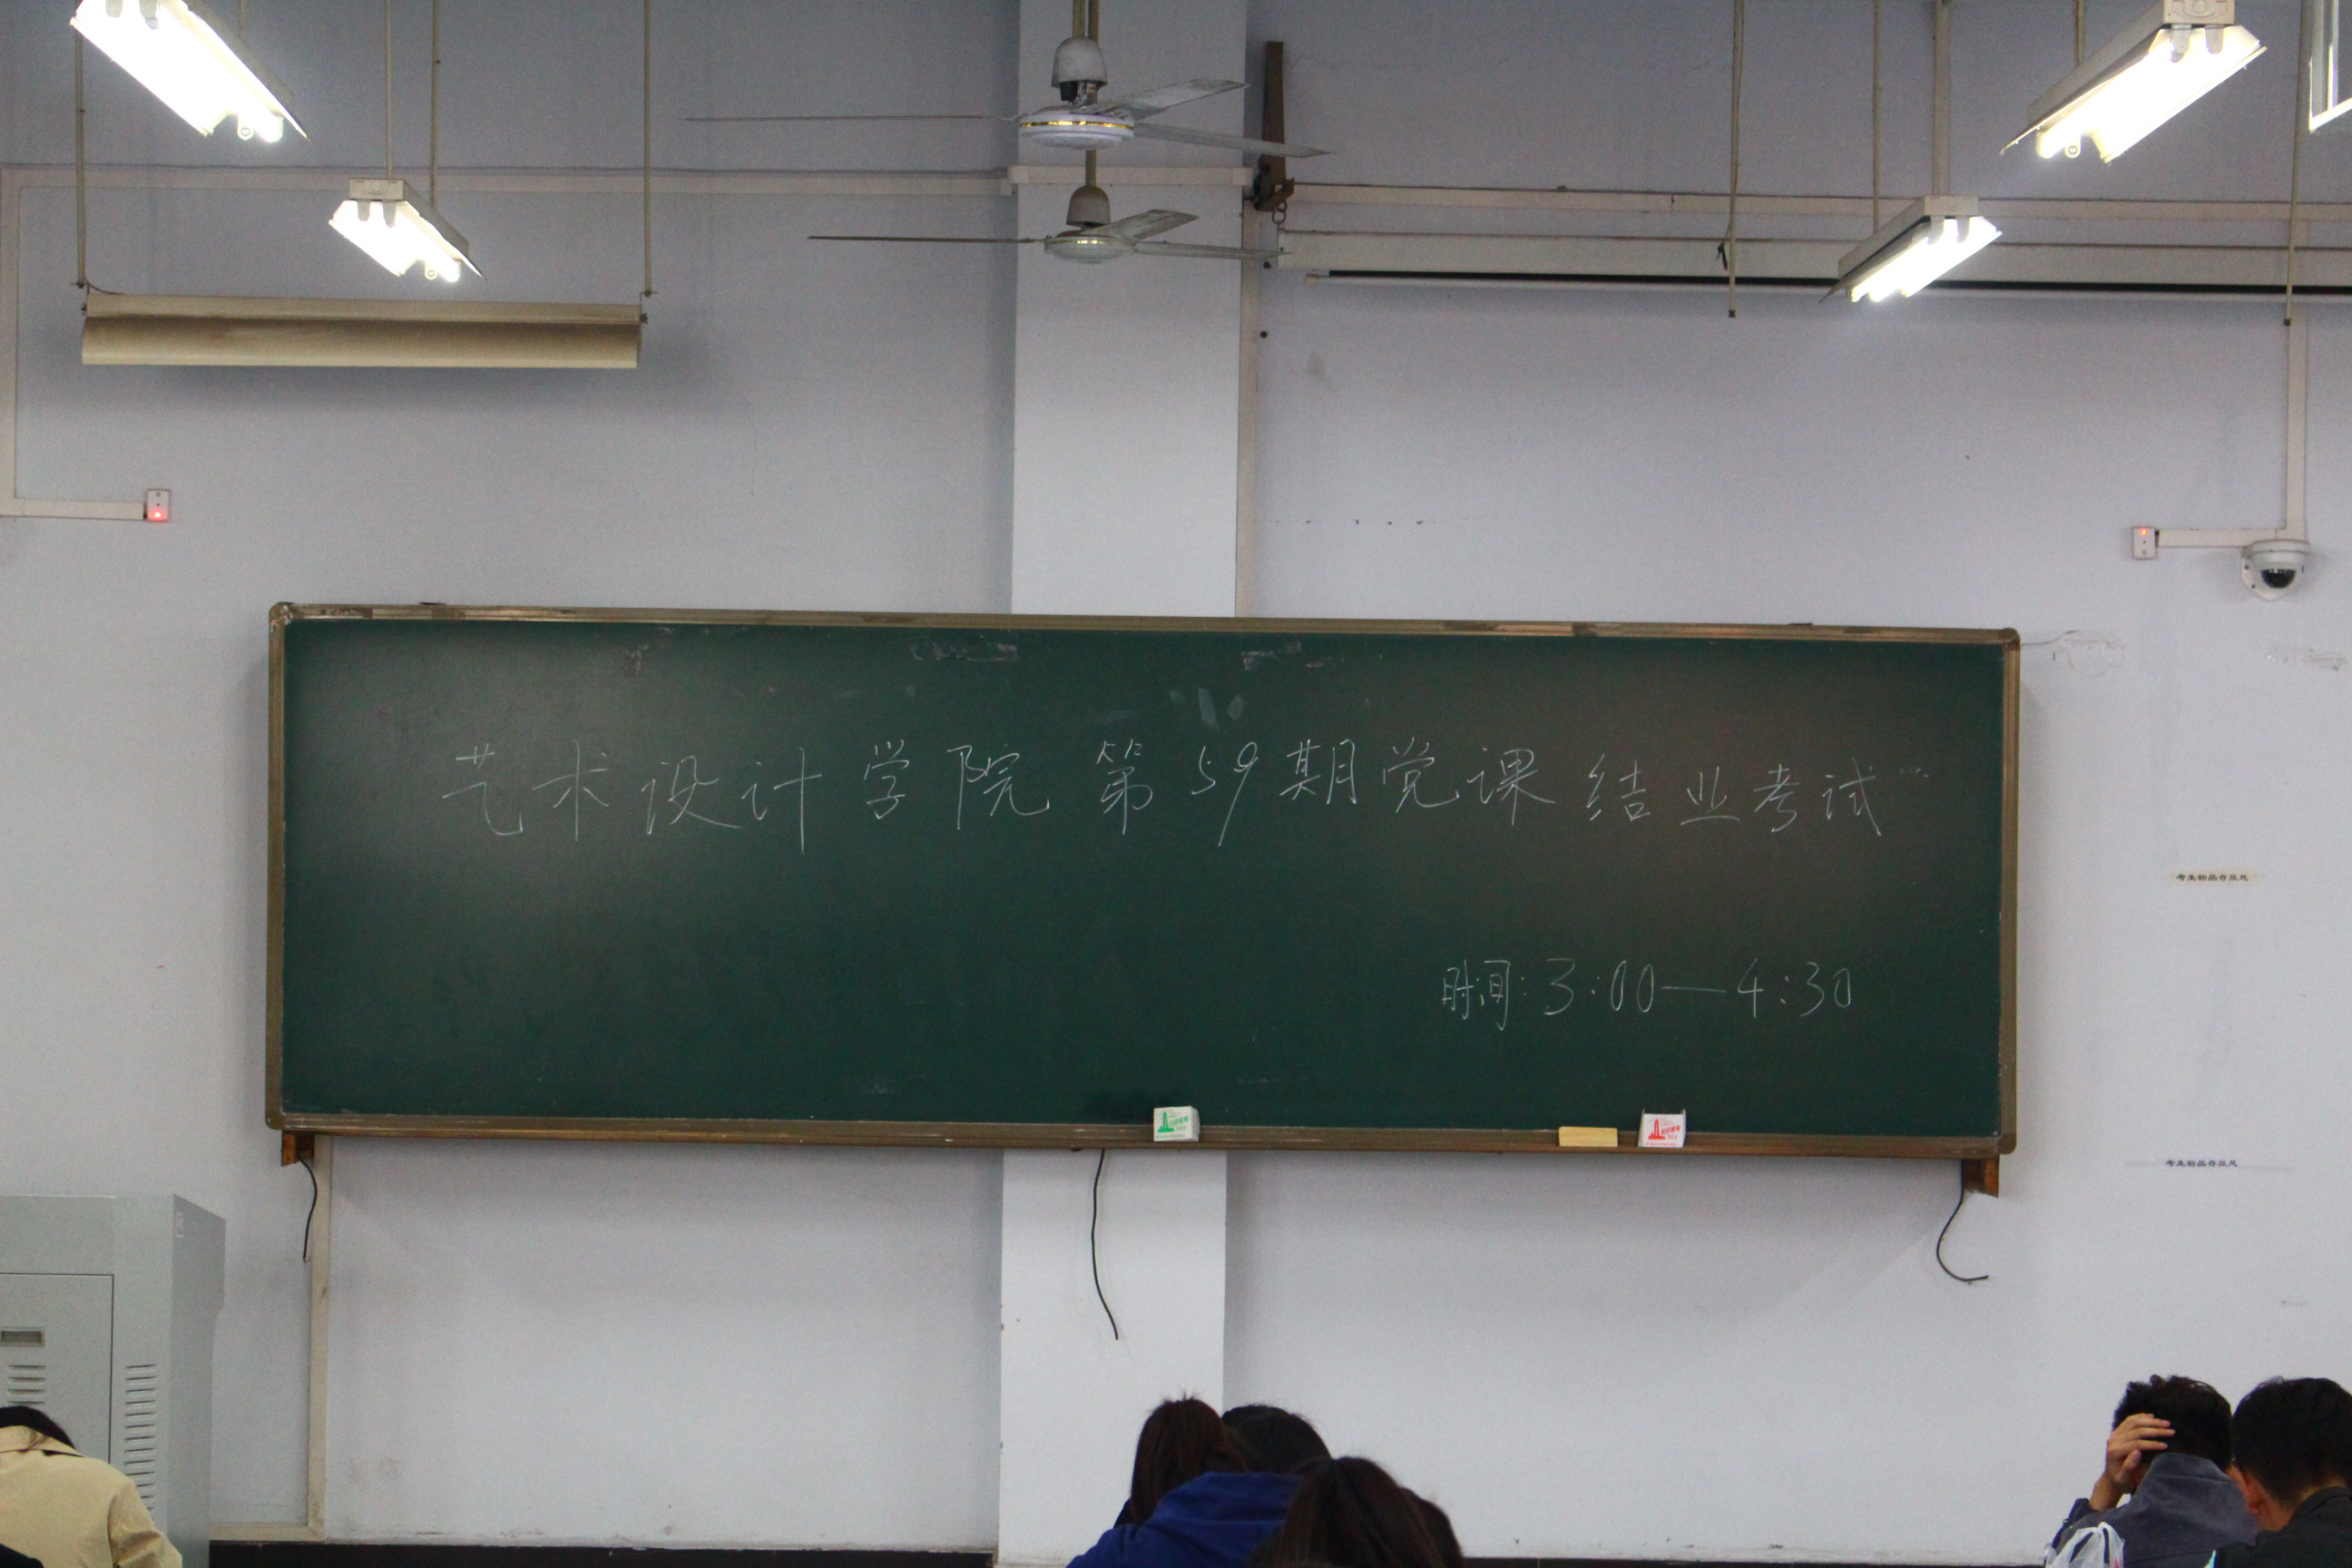 艺术设计学院 第59期党课结业考试
时间:3:00—4:30
考生物品存放处
考生物品存放处